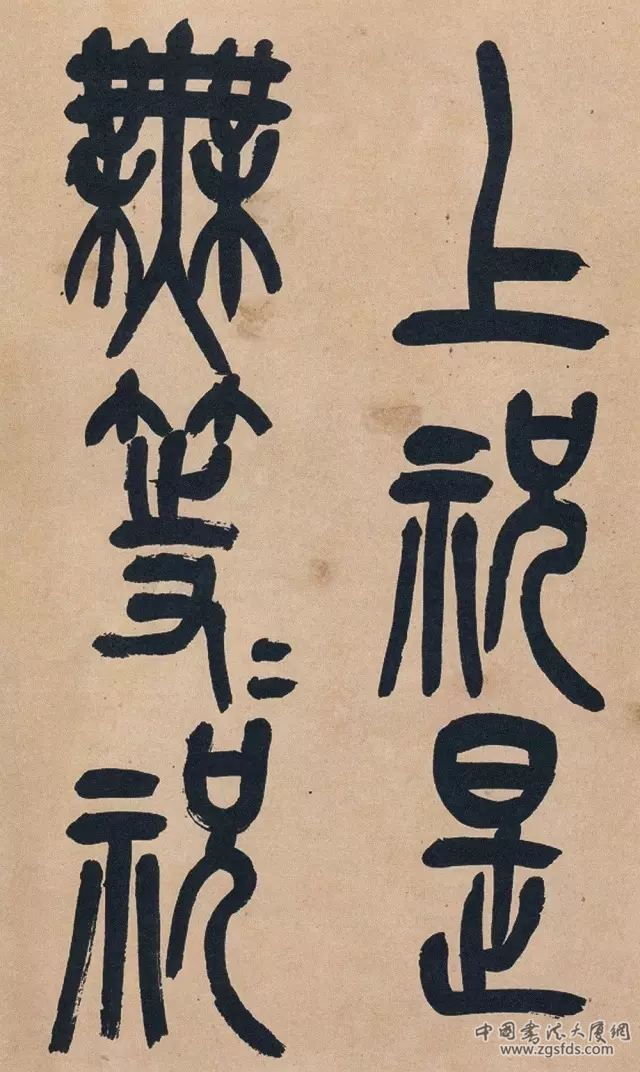 上祝是
無等〻祝
中國書法大厦網
www.zgsfds.com